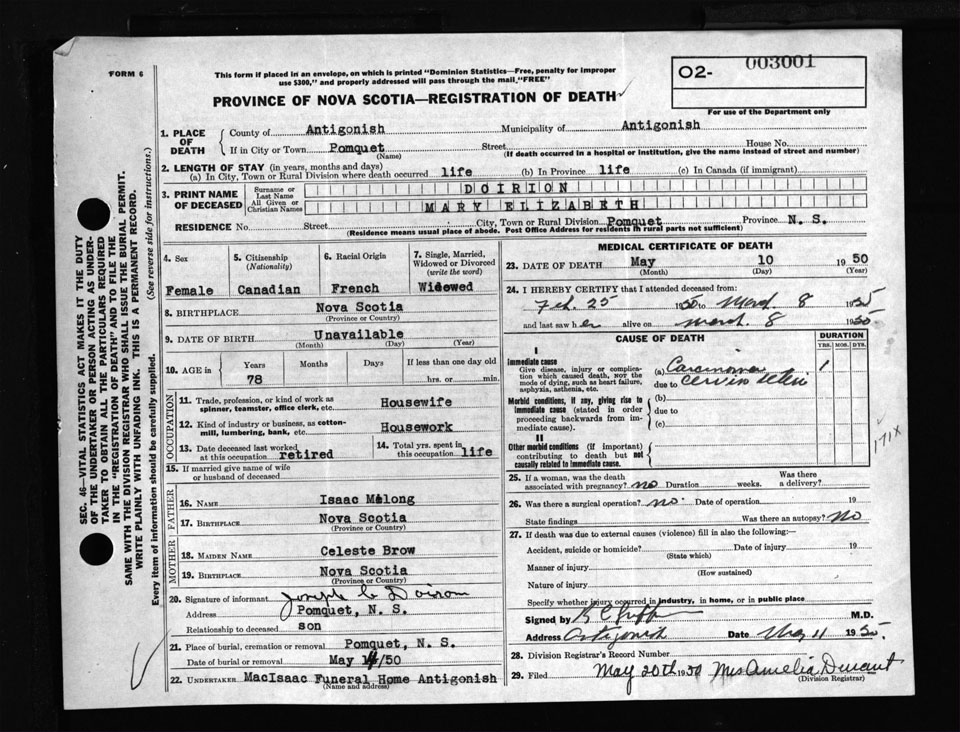 FORM 6
This form if placed in an envelope, on which is printed "Dominion Statistics—Free, penalty for improper
use $300," and properly addressed will pass through the mail "FREE"
PROVINCE OF NOVA SCOTIA—REGISTRATION OF DEATH
O2- 003001
For use of the Department only
SEC. 46—VITAL STATISTICS ACT MAKES IT THE DUTY
OF THE UNDERTAKER OR PERSON ACTING AS UNDER-
TAKER TO OBTAIN ALL THE PARTICULARS REQUIRED
IN THE "REGISTRATION OF DEATH" AND TO FILE THE
SAME WITH THE DIVISION REGISTRAR WHO SHALL ISSUE THE BURIAL PERMIT.
WRITE PLAINLY WITH UNFADING INK. THIS IS A PERMANENT RECORD.
Every item of information should be carefully supplied. (See reverse side for instructions.)
1. PLACE OF DEATH County of Antigonish Municipality of Antigonish
If in City or Town Pomquet Street House No.
(Name) (If death occurred in a hospital or institution, give the name instead of street and number)
2. LENGTH OF STAY (in years, months and days)
(a) In City, Town or Rural Division where death occurred life (b) In Province life (c) In Canada (if immigrant)
3. PRINT NAME OF DECEASED Surname or Last Name DOIRION
All Given or Christian Names MARY ELIZABETH
RESIDENCE No. Street City, Town or Rural Division Pomquet Province N. S.
(Residence means usual place of abode. Post Office Address for residents in rural parts not sufficient)
4. Sex 5. Citizenship (Nationality) 6. Racial Origin 7. Single, Married, Widowed or Divorced (write the word)
Female Canadian French Widowed
8. BIRTHPLACE Nova Scotia
(Province or Country)
9. DATE OF BIRTH Unavailable
(Month) (Day) (Year)
10. AGE in Years Months Days If less than one day old
78 hrs. or min.
OCCUPATION
11. Trade, profession, or kind of work as spinner, teamster, office clerk, etc. Housewife
12. Kind of industry or business, as cotton-mill, lumbering, bank, etc. Housework
13. Date deceased last worked at this occupation retired 14. Total yrs. spent in this occupation life
15. If married give name of wife or husband of deceased
FATHER
16. NAME Isaac Melong
17. BIRTHPLACE Nova Scotia
(Province or Country)
MOTHER
18. MAIDEN NAME Celeste Brow
19. BIRTHPLACE Nova Scotia
(Province or Country)
20. Signature of informant Joseph C Doirom
Address Pomquet, N. S.
Relationship to deceased son
21. Place of burial, cremation or removal Pomquet, N. S.
Date of burial or removal May 14/50
22. UNDERTAKER MacIsaac Funeral Home Antigonish
(Name and address)
MEDICAL CERTIFICATE OF DEATH
23. DATE OF DEATH May 10 1950
(Month) (Day) (Year)
24. I HEREBY CERTIFY that I attended deceased from:
Feb. 25 1950 to March 8 1950
and last saw her alive on March 8 1950
CAUSE OF DEATH DURATION
YRS. MOS. DYS.
I
Immediate cause
Give disease, injury or complication which caused death, NOT the mode of dying, such as heart failure, asphyxia, asthenia, etc.
(a) Carcinoma 1
due to cervix uteri
Morbid conditions, if any, giving rise to immediate cause (stated in order proceeding backwards from immediate cause).
(b)
due to
(c)
II
Other morbid conditions (if important) contributing to death but not causally related to immediate cause.
171X
25. If a woman, was the death associated with pregnancy? no Duration weeks. Was there a delivery?
26. Was there a surgical operation? no. Date of operation 19
State findings Was there an autopsy? No
27. If death was due to external causes (violence) fill in also the following:—
Accident, suicide or homicide? Date of injury 19
(State which)
Manner of injury
(How sustained)
Nature of injury
Specify whether injury occurred in industry, in home, or in public place
Signed by M.D.
Address Antigonish Date May 11 1950.
28. Division Registrar's Record Number
29. Filed May 20th 1950 Mrs Amelia Durant
(Division Registrar)